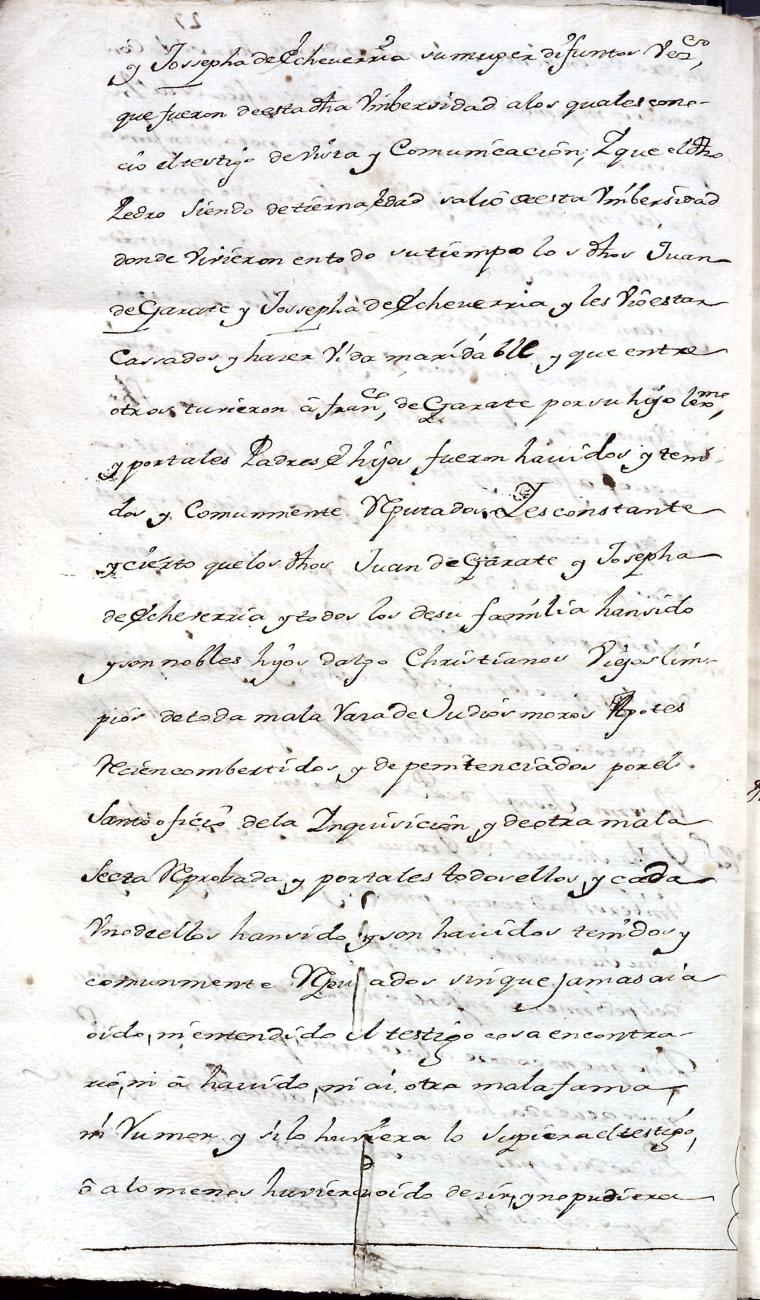 y Josseph­a de Echeverria su muger difuntos Vezos,
que fueron de esta dha Vnibersidad a los quales cono-
cio el testigo de Vista y Comunicación, Y que el dho
Pedro siendo de tierna edad salió de esta Vnibersidad
donde Vivieron en todo su tiempo los dhos Juan
de Garate y Jossepha de Echeverria y les Vió estar
Cassados y hazer Vida maridable y que entre
otros tuvieron á Franco, de Garate por su hijo lexmo,
y por tales Padres e hijos fueron havidos y teni-
dos y Comunmente Reputados. Y es constante
y cierto que los dhos Juan de Garate y Josepha
de Echeverria y todos los de su familia han sido
y son nobles hijos dalgo Christianos Viejos lim-
pios de toda mala Raza de Judios moros Agotes
Recien combertidos y de penitenciados por el
Santo oficio de la Inquisición y de otra mala
Secta Reprobada y por tales todos ellos y cada
Vno de ellos han sido y son havidos tenidos y
comunmente Reputados sin que jamas aia
oido, ni entendido el testigo cosa en contra-
rio, ni á havido, ni ai otra mala fama,
ni Rumor y si lo huviera lo supiera el testigo,
ó a lo menos huviera oido dezir, y no pudiera